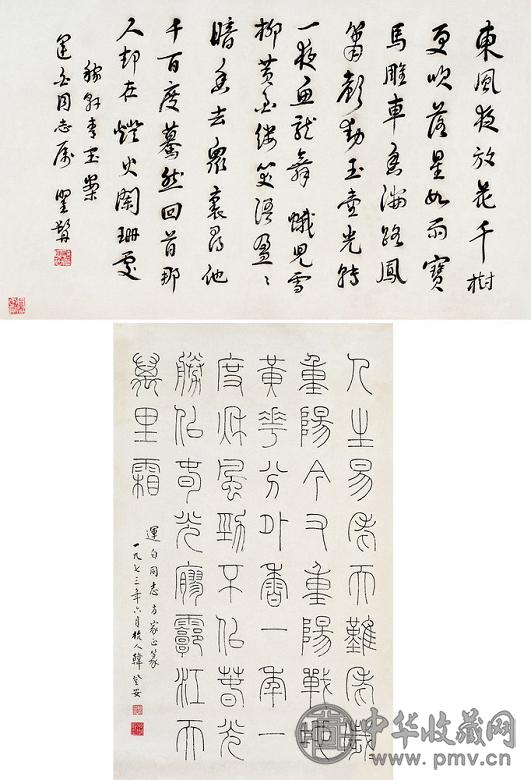 東風夜放花千樹
更吹落星如雨寶
馬雕車香滿路鳳
簫聲動玉壺光轉
一夜魚龍舞蛾兒雪
柳黃金縷笑語盈〻
暗香去衆裏尋他
千百度驀然回首那
人却在燈火闌珊處
稼軒青玉案
運白同志属
人生易老天難老歲
重陽今又重陽戰地
黃花分外香一年一
度秋風勁不似春光
勝似春光寥廓江天
萬里霜
運白同志方家正篆
一九七三年六月 人韓登安
中华收藏网
www.pmv.cn